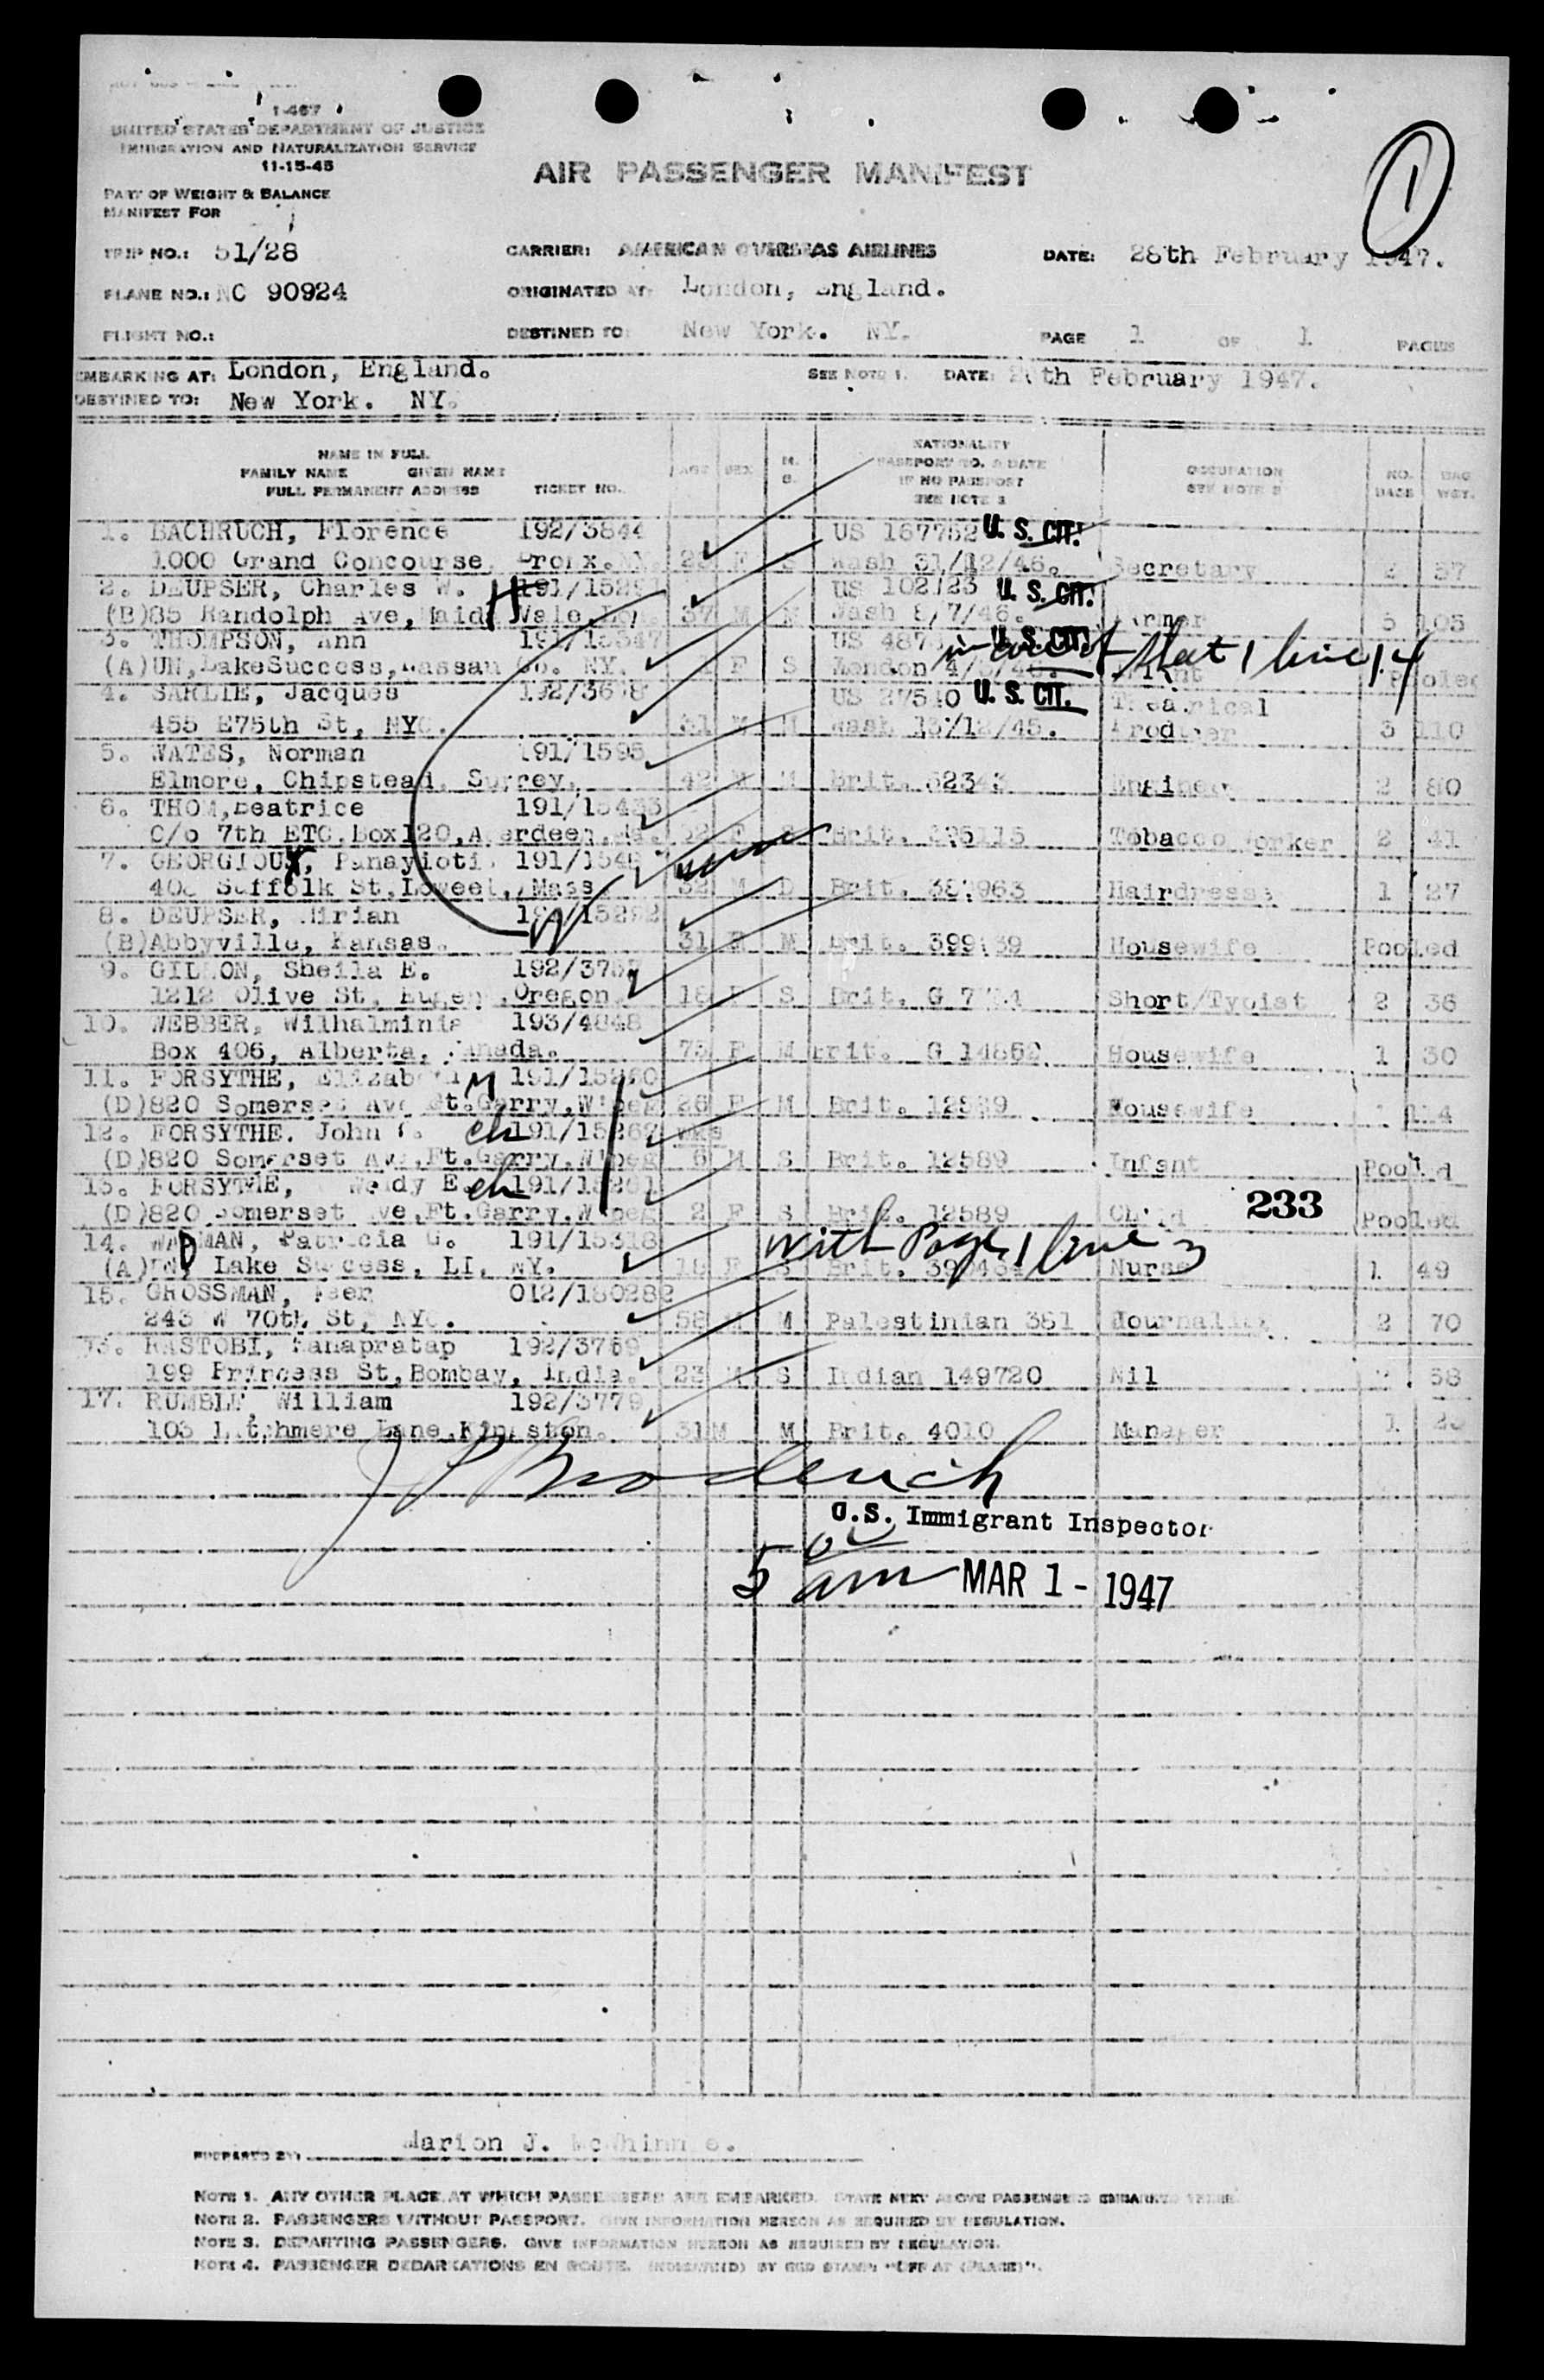 1-467
UNITED STATES DEPARTMENT OF JUSTICE
IMMIGRATION AND NATURALIZATION SERVICE
11-15-45
AIR PASSENGER MANIFEST
1
PART OF WEIGHT & BALANCE
MANIFEST FOR
TRIP NO.: 51/28 CARRIER: AMERICAN OVERSEAS AIRLINES DATE: 28th February 1947.
PLANE NO.: NC 90924 ORIGINATED AT: London, England.
FLIGHT NO.: DESTINED TO: New York. NY. PAGE 1 OF 1 PAGES
EMBARKING AT: London, England. SEE NOTE 1. DATE: 28th February 1947.
DESTINED TO: New York. NY.
NAME IN FULL NATIONALITY
FAMILY NAME GIVEN NAME AGE SEX M. PASSPORT NO. & DATE OCCUPATION NO. BAG
S. IF NO PASSPORT SEE NOTE BAGS WGT.
FULL PERMANENT ADDRESS TICKET NO. SEE NOTE
1. BACHRUCH, Florence 192/3844 US 167752 U. S. CIT.
1000 Grand Concourse, Bronx. NY. F S Wash 31/12/46. Secretary 2 57
2. DEUPSER, Charles W. H 191/1529 US 102 23 U. S. CIT.
(B)85 Randolph Ave, Maida Vale, Lon. 37 M M Wash 8/7/46. Farmer 3 105
3. THOMPSON, Ann 191/15347 US 487 U. S. CIT. sheet 1 line 14
(A)UN, LakeSuccess, Nassau Co. NY. F S London Pooled
4. SARLIE, Jacques 192/36 8 US 27540 U. S. CIT. Theatrical
455 E75th St, NYC. 31 M M Wash 13/12/45. Producer 3 110
5. WATES, Norman 191/1595
Elmore, Chipstead, Surrey. 42 M M Brit. 5234 Engineer 2 80
6. THOM, Beatrice 191/15433
C/o 7th ETC. Box120, Aberdeen, F S Brit. Tobacco Worker 2 41
7. GEORGIOU, Panayioti. 191/154
40 Suffolk St, Loweel, Mass. 32 M D Brit. 387963 Hairdresser 1 27
8. DEUPSER, Mirian 191/15292
(B)Abbyville, Kansas. 31 F M Brit. 399 39 Housewife Pooled
9. GILMON, Sheila E. 192/375
1212 Olive St, Eugene, Oregon. 18 F S Brit. G 7 Short/Typist 2 36
10. WEBBER, Wilhalminia 193/4848
Box 406, Alberta, Canada. 73 F M Brit. G 14862 Housewife 1 30
11. FORSYTHE, Elizabeth M 191/15260
(D)820 Somerset Ave Ft. Garry, W'peg 26 F M Brit. 12589 Housewife 1 114
12. FORSYTHE. John ch 191/15262 wks
(D)820 Somerset Ave, Ft. Garry, W'peg 6 M S Brit. 12589 Infant Pooled
13. FORSYTHE, Wendy E. ch 191/15261
(D)820 Somerset Ave, Ft. Garry, W'peg 2 F S Brit. 12589 Child 233 Pooled
14. WADMAN, Patricia G. 191/15318 with Page 1 line 3
(A)UN, Lake Success, LI, NY. 18 F S Brit. Nurse 1 49
15. GROSSMAN, 012/180282
243 W 70th St, NYC. 58 M M Palestinian 381 Journalist 2 70
RASTOBI, Ranapratap 192/3769
199 Princess St, Bombay, India. 23 M S Indian 149720 Nil 58
17. RUMBLE, William 192/3779
103 Latchmere Lane, Kingston. 31 M M Brit. 4010 Manager 1
J P Broderick
U.S. Immigrant Inspector
5 00 am MAR 1 - 1947
PREPARED BY: Marion J. McWhinnie.
NOTE 1. ANY OTHER PLACE AT WHICH PASSENGERS ARE EMBARKED. STATE NEXT ABOVE PASSENGERS EMBARKED THERE.
NOTE 2. PASSENGERS WITHOUT PASSPORT. GIVE INFORMATION HEREON AS REQUIRED BY REGULATION.
NOTE 3. DEPARTING PASSENGERS. GIVE INFORMATION HEREON AS REQUIRED BY REGULATION.
NOTE 4. PASSENGER DEBARKATIONS EN ROUTE. INDICATE(D) BY STAMP "OFF AT (PLACE)".